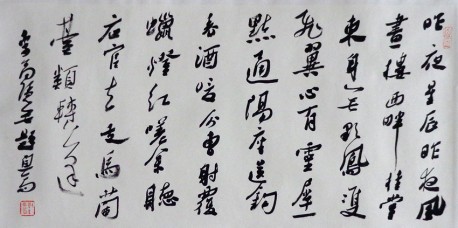 昨夜星辰昨夜風
畫樓西畔桂堂
東身無彩鳳雙
飛翼心有靈犀一
點通隔座送鉤
春酒暖分曹射覆
蠟燈紅嗟余聽
官去走馬蘭
臺類轉蓬
李商隱無題